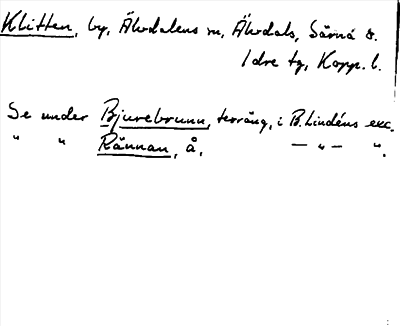 Klitten, by, Älvdalens sn, Älvdals, Särna &
Idre tg, Kopp. l.
Se under Bjurebrunn, terräng, i B. Lindéns exc.
" " Rännan, å. — " — ".